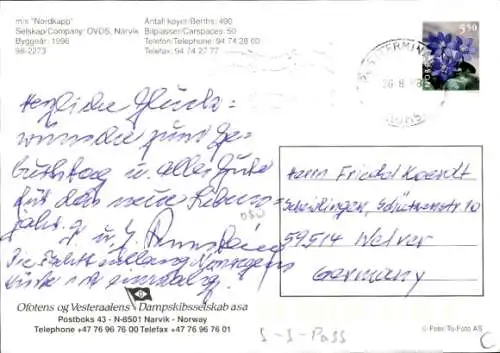 m/s "Nordkapp"
Selskap/Company: OVDS, Narvik
Byggeår: 1996
98-2273
Antall køyer/Berths: 490
Bilplasser/Carspaces: 50
Telefon/Telephone: 94 74 28 60
Telefax: 94 74 27 77
5,50
NORGE
26-8
Herzliche Glück=
wünsche zum Ge=
burtstag u. alles Gute
für das neue Lebens=
jahr.
Die Fahrt entlang Norwegens
Küste ist
Herrn Friedel
Scheidingen, Schützenstr 10
59514 Welver
Germany
Ofotens og Vesteraalens Dampskibsselskab a.s.a
Postboks 43 - N-8501 Narvik - Norway
Telephone +47 76 96 76 00 Telefax +47 76 96 76 01
© Foto: To-Foto AS
S-S-Pass
C